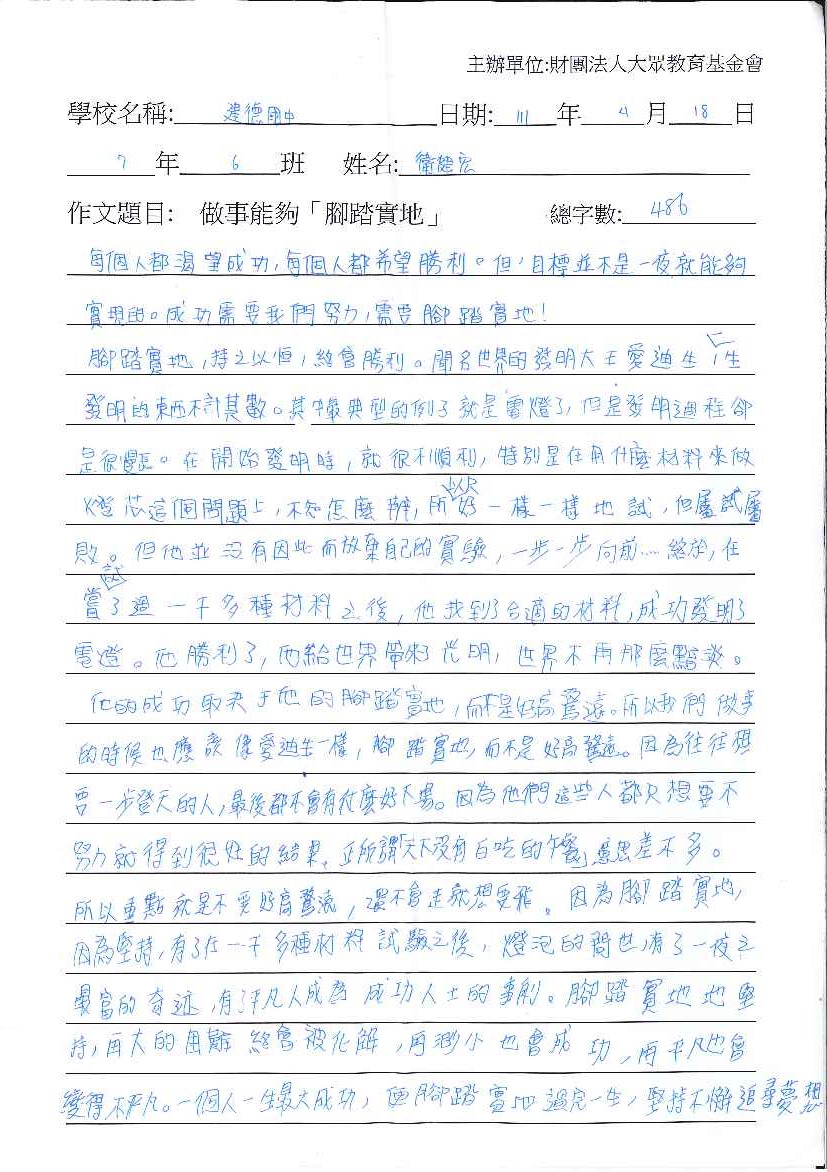 主辦單位:財團法人大眾教育基金會
學校名稱: 建德國中 日期: 111 年 4 月 18 日
7 年 6 班 姓名: 衛
作文題目: 做事能夠「腳踏實地」 總字數: 486
每個人都渴望成功,每個人都希望勝利。但,目標並不是一夜就能夠
實現的。成功需要我們努力,需要腳踏實地!
腳踏實地,持之以恒,終會勝利。聞名世界的發明大王愛迪生,一生
發明的東西不計其數。其中最典型的例子就是電燈了,但是發明過程卻
是很漫長。在開始發明時,就很不順利,特別是在用什麼材料來做
燈芯這個問題上,不知怎麼辦,所以只好一樣一樣地試,但屢試屢
敗。但他並沒有因此而放棄自己的實驗,一步一步向前....終於,在
嘗試了過一千多種材料之後,他找到了合適的材料,成功發明了
電燈。他勝利了,而給世界帶來光明,世界不再那麼黯淡。
他的成功取決于他的腳踏實地,而不是好高鶩遠。所以我們做事
的時候也應該像愛迪生一樣,腳踏實地,而不是好高鶩遠。因為往往想
要一步登天的人,最後都不會有什麼好下場。因為他們這些人都只想要不
努力就得到很好的結果,正所謂「天下沒有白吃的午餐」意思差不多。
所以重點就是不要好高鶩遠,還不會走就想要飛。因為腳踏實地,
因為堅持,有了在一千多種材料試驗之後,燈泡的問世,有了一夜之
最富的奇迹,有了平凡人成為成功人士的事例。腳踏實地地堅
持,再大的困難終會被化解,再渺小也會成功,再平凡也會
變得不平凡。一個人一生最大成功,便腳踏實地過完一生,堅持不懈追尋夢想